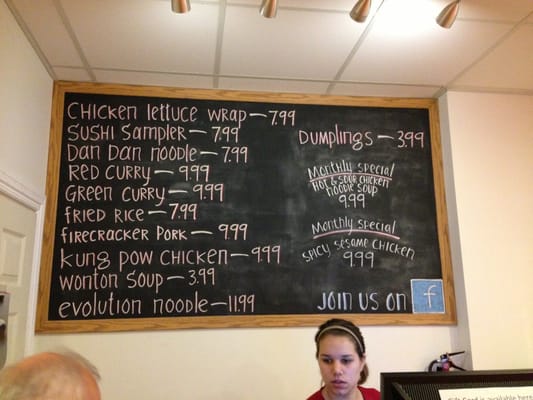 Chicken lettuce wrap - 7.99
Sushi Sampler - 7.99
Dan Dan noodle - 7.99
Red Curry - 9.99
Green Curry - 9.99
Fried Rice - 7.99
Firecracker Pork - 9.99
Kung Pow Chicken - 9.99
Wonton Soup - 3.99
evolution noodle - 11.99
Dumplings - 3.99
Monthly special
Hot & Sour Chicken
Noodle Soup
9.99
Monthly special
Spicy Sesame Chicken
9.99
Join us on f
is available here